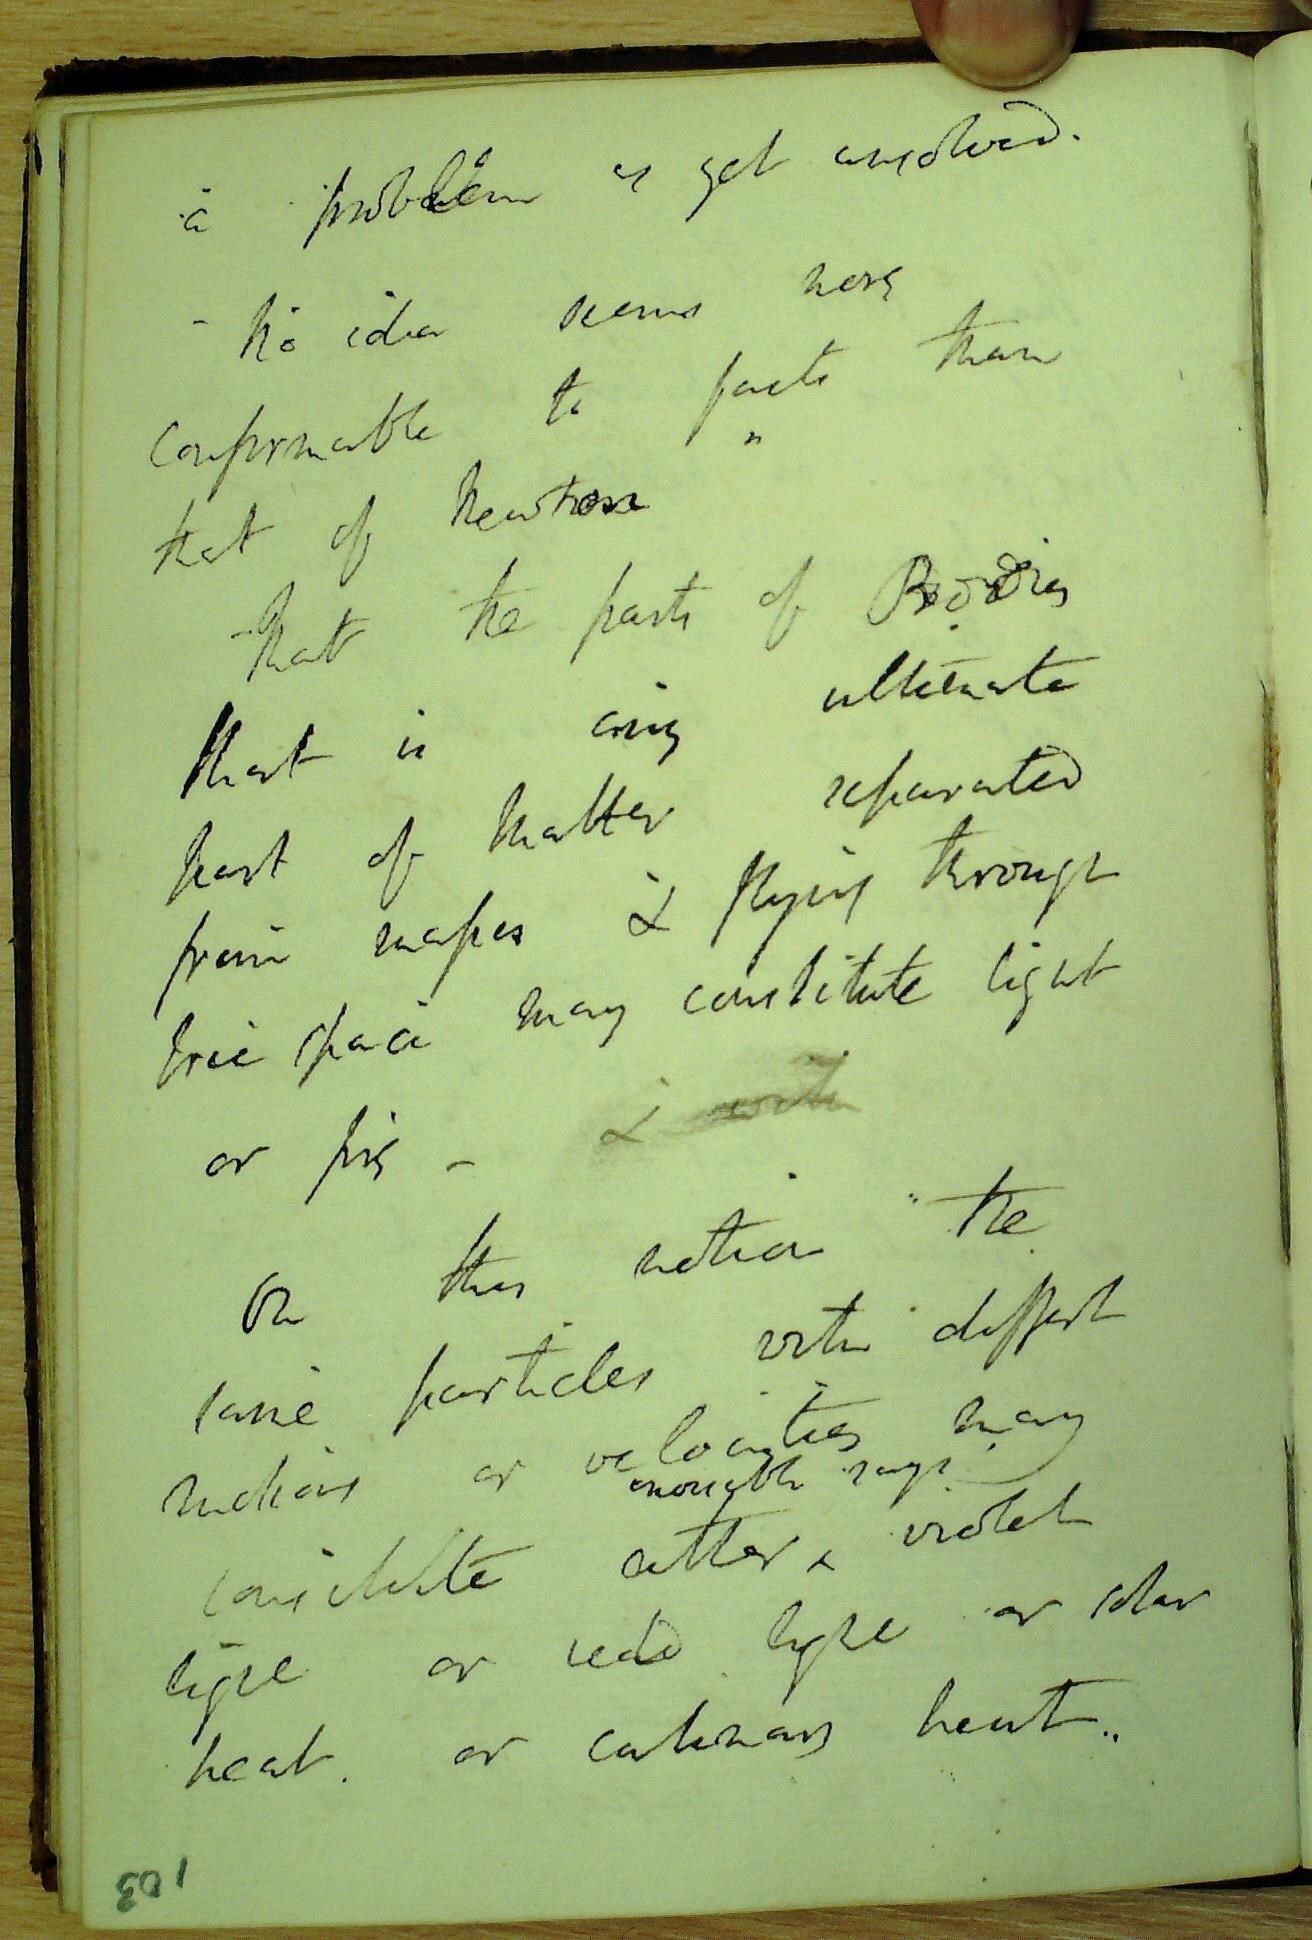 a problem as yet unsolved.
- No idea seems more
conformable to facts than
that of Newton
- That the parts of Bodies
that is any ultimate
part of Matter separated
from masses & flying through
free space may constitute light
or fire - & with
On this notion the
same particles with different
motions or velocities may
rays
constitute either violet
light or red light or solar
heat. or culinary heat..
103